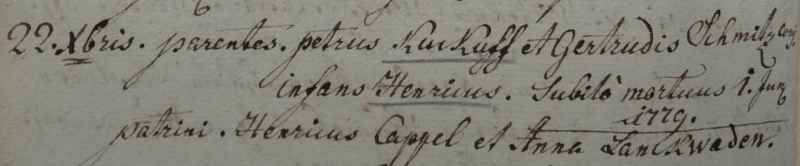 22. Xbris. parentes. petrus Kuckuff et Gertrudis Schmitz conj.
infans Henricus. Subitò mortuus 1. Junj
1779.
patrini. Henricus Cappel et Anna Lanckwaden.